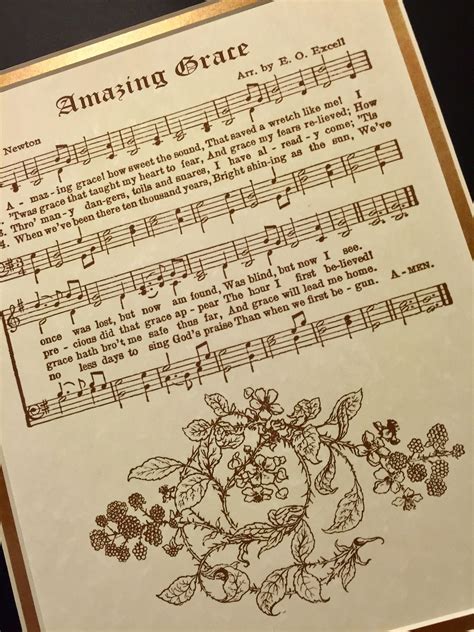 Amazing Grace
Newton
Arr. by E. O. Excell
A - maz - ing grace! how sweet the sound, That saved a wretch like me! I
'Twas grace that taught my heart to fear, And grace my fears re-lieved; How
3. Thro' man - y dan - gers, toils and snares, I have al - read - y come; 'Tis
4. When we've been there ten thousand years, Bright shin-ing as the sun, We've
once was lost, but now am found, Was blind, but now I see.
pre - cious did that grace ap - pear The hour I first be-lieved!
grace hath bro't me safe thus far, And grace will lead me home. A-MEN.
no less days to sing God's praise Than when we first be - gun.